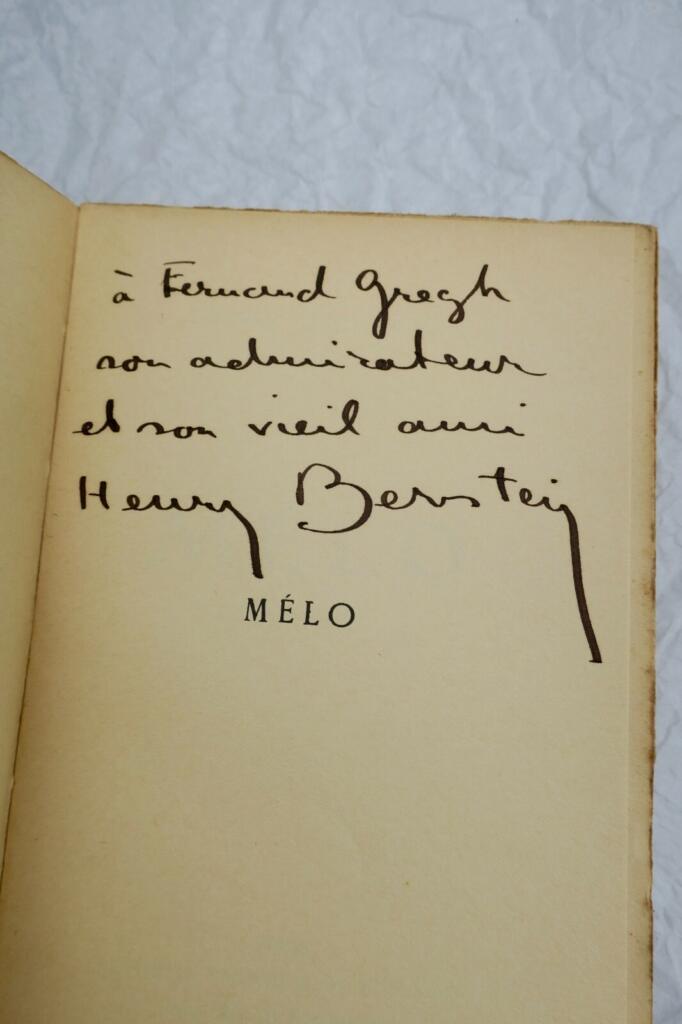 à Fernand Gregh
son admirateur
et son vieil ami
Henry Bernstein
MÉLO